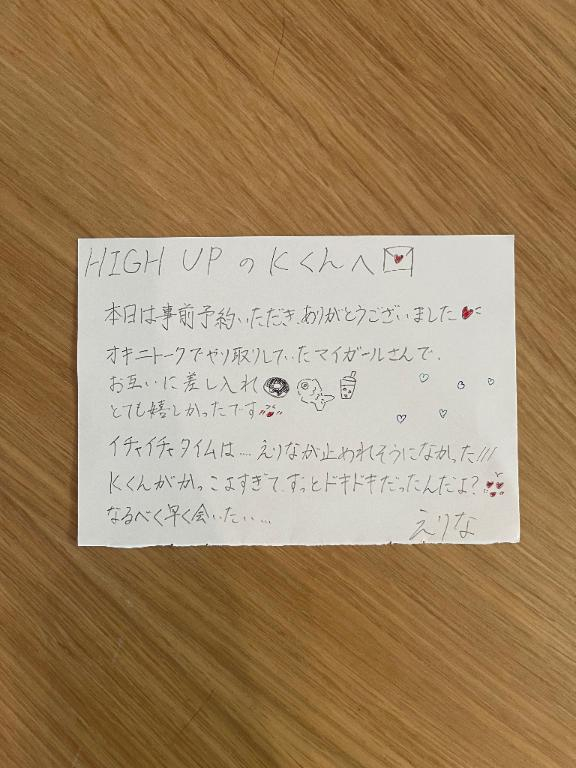 HIGH UP のKくんへ
本日は事前予約いただき、ありがとうございました
オキニトークでやり取りしていたマイガールさんで、
お互いに差し入れ
とても嬉しかったです
イチャイチャタイムは.... えりなが止めれそうになかった///
Kくんがかっこよすぎて、ずっとドキドキだったんだよ?
なるべく早く会いたい...
えりな